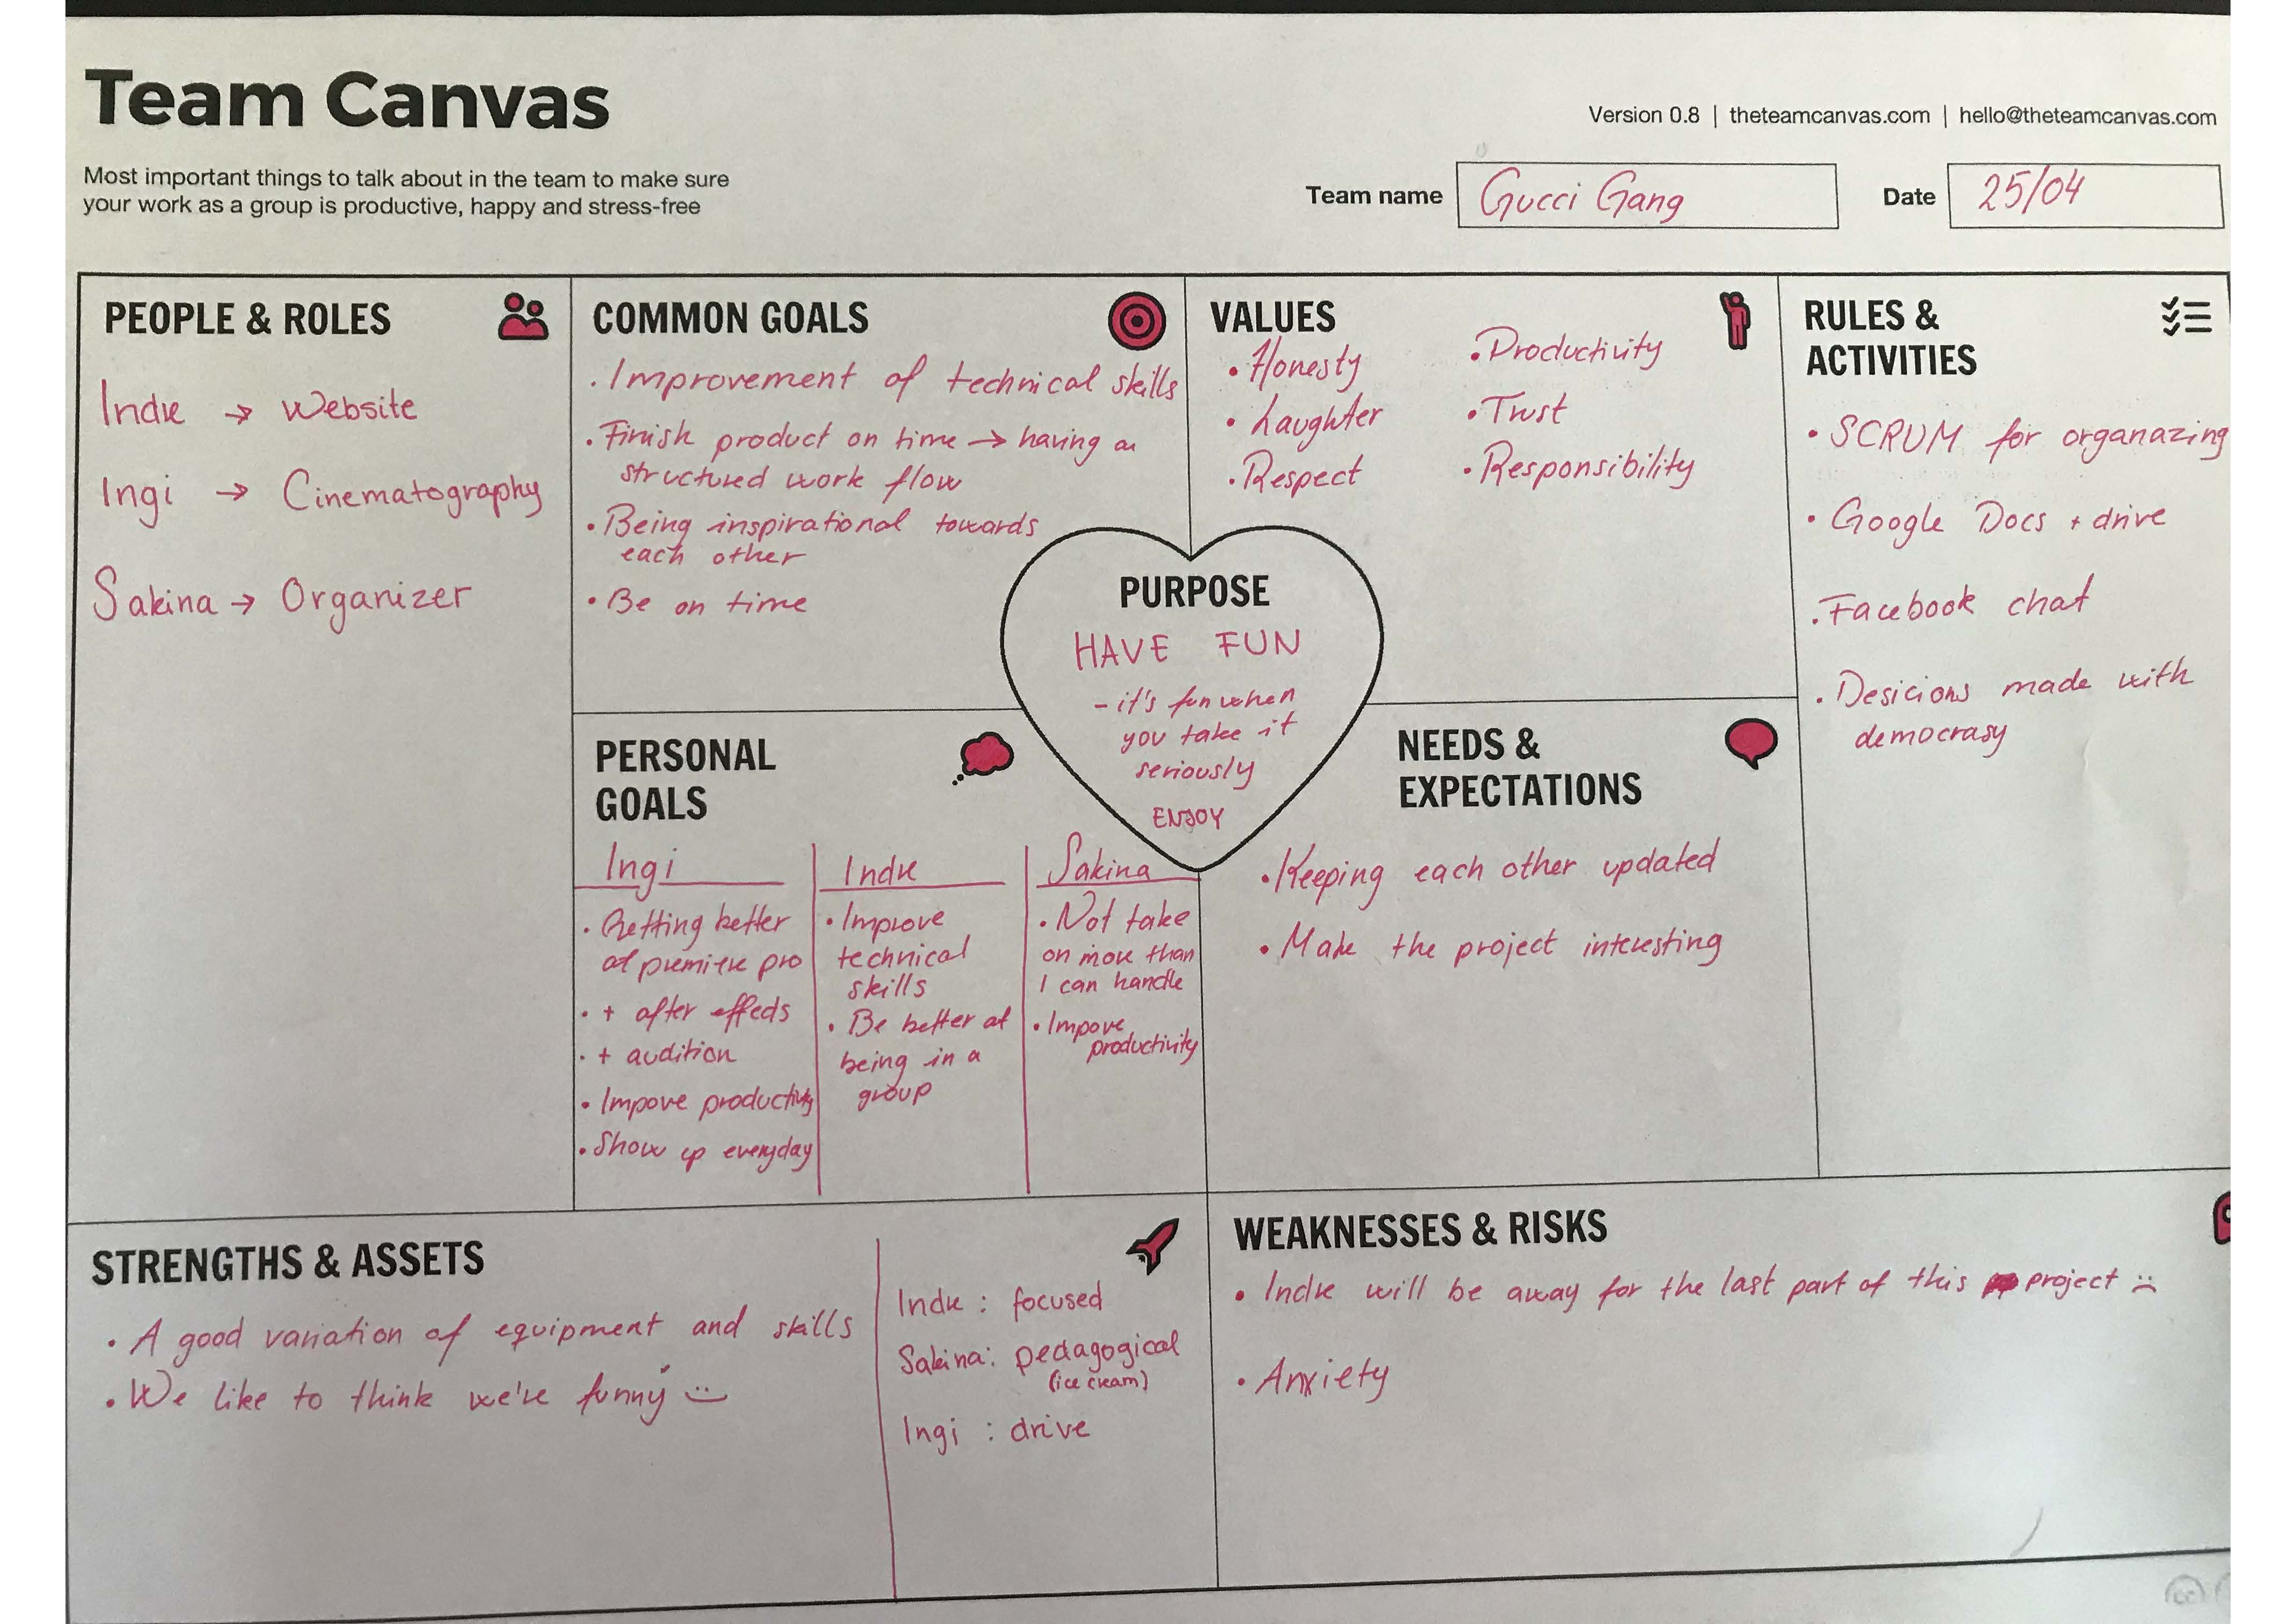 Team Canvas
Version 0.8 | theteamcanvas.com | hello@theteamcanvas.com
Most important things to talk about in the team to make sure
your work as a group is productive, happy and stress-free
Team name
Gucci Gang
Date
25/04
PEOPLE & ROLES
Indre → Website
Ingi → Cinematography
Sakina → Organizer
COMMON GOALS
· Improvement of technical skills
· Finish product on time → having a
structured work flow
· Being inspirational towards
each other
· Be on time
VALUES
· Honesty
· Laughter
· Respect
· Productivity
· Trust
· Responsibility
RULES &
ACTIVITIES
· SCRUM for organazing
· Google Docs + drive
· Facebook chat
· Desicions made with
democrasy
PURPOSE
HAVE FUN
- it's fun when
you take it
seriously
ENJOY
PERSONAL
GOALS
Ingi
· Getting better
at premiere pro
· + after effects
· + audition
· Impove productivity
· Show up everyday
Indre
· Improve
technical
skills
· Be better at
being in a
group
Sakina
· Not take
on more than
I can handle
· Impove
productivity
NEEDS &
EXPECTATIONS
· Keeping each other updated
· Make the project interesting
STRENGTHS & ASSETS
· A good variation of equipment and skills
· We like to think we're funny :)
Indre : focused
Sakina: pedagogical
(ice cream)
Ingi : drive
WEAKNESSES & RISKS
· Indre will be away for the last part of this project :(
· Anxiety
cc